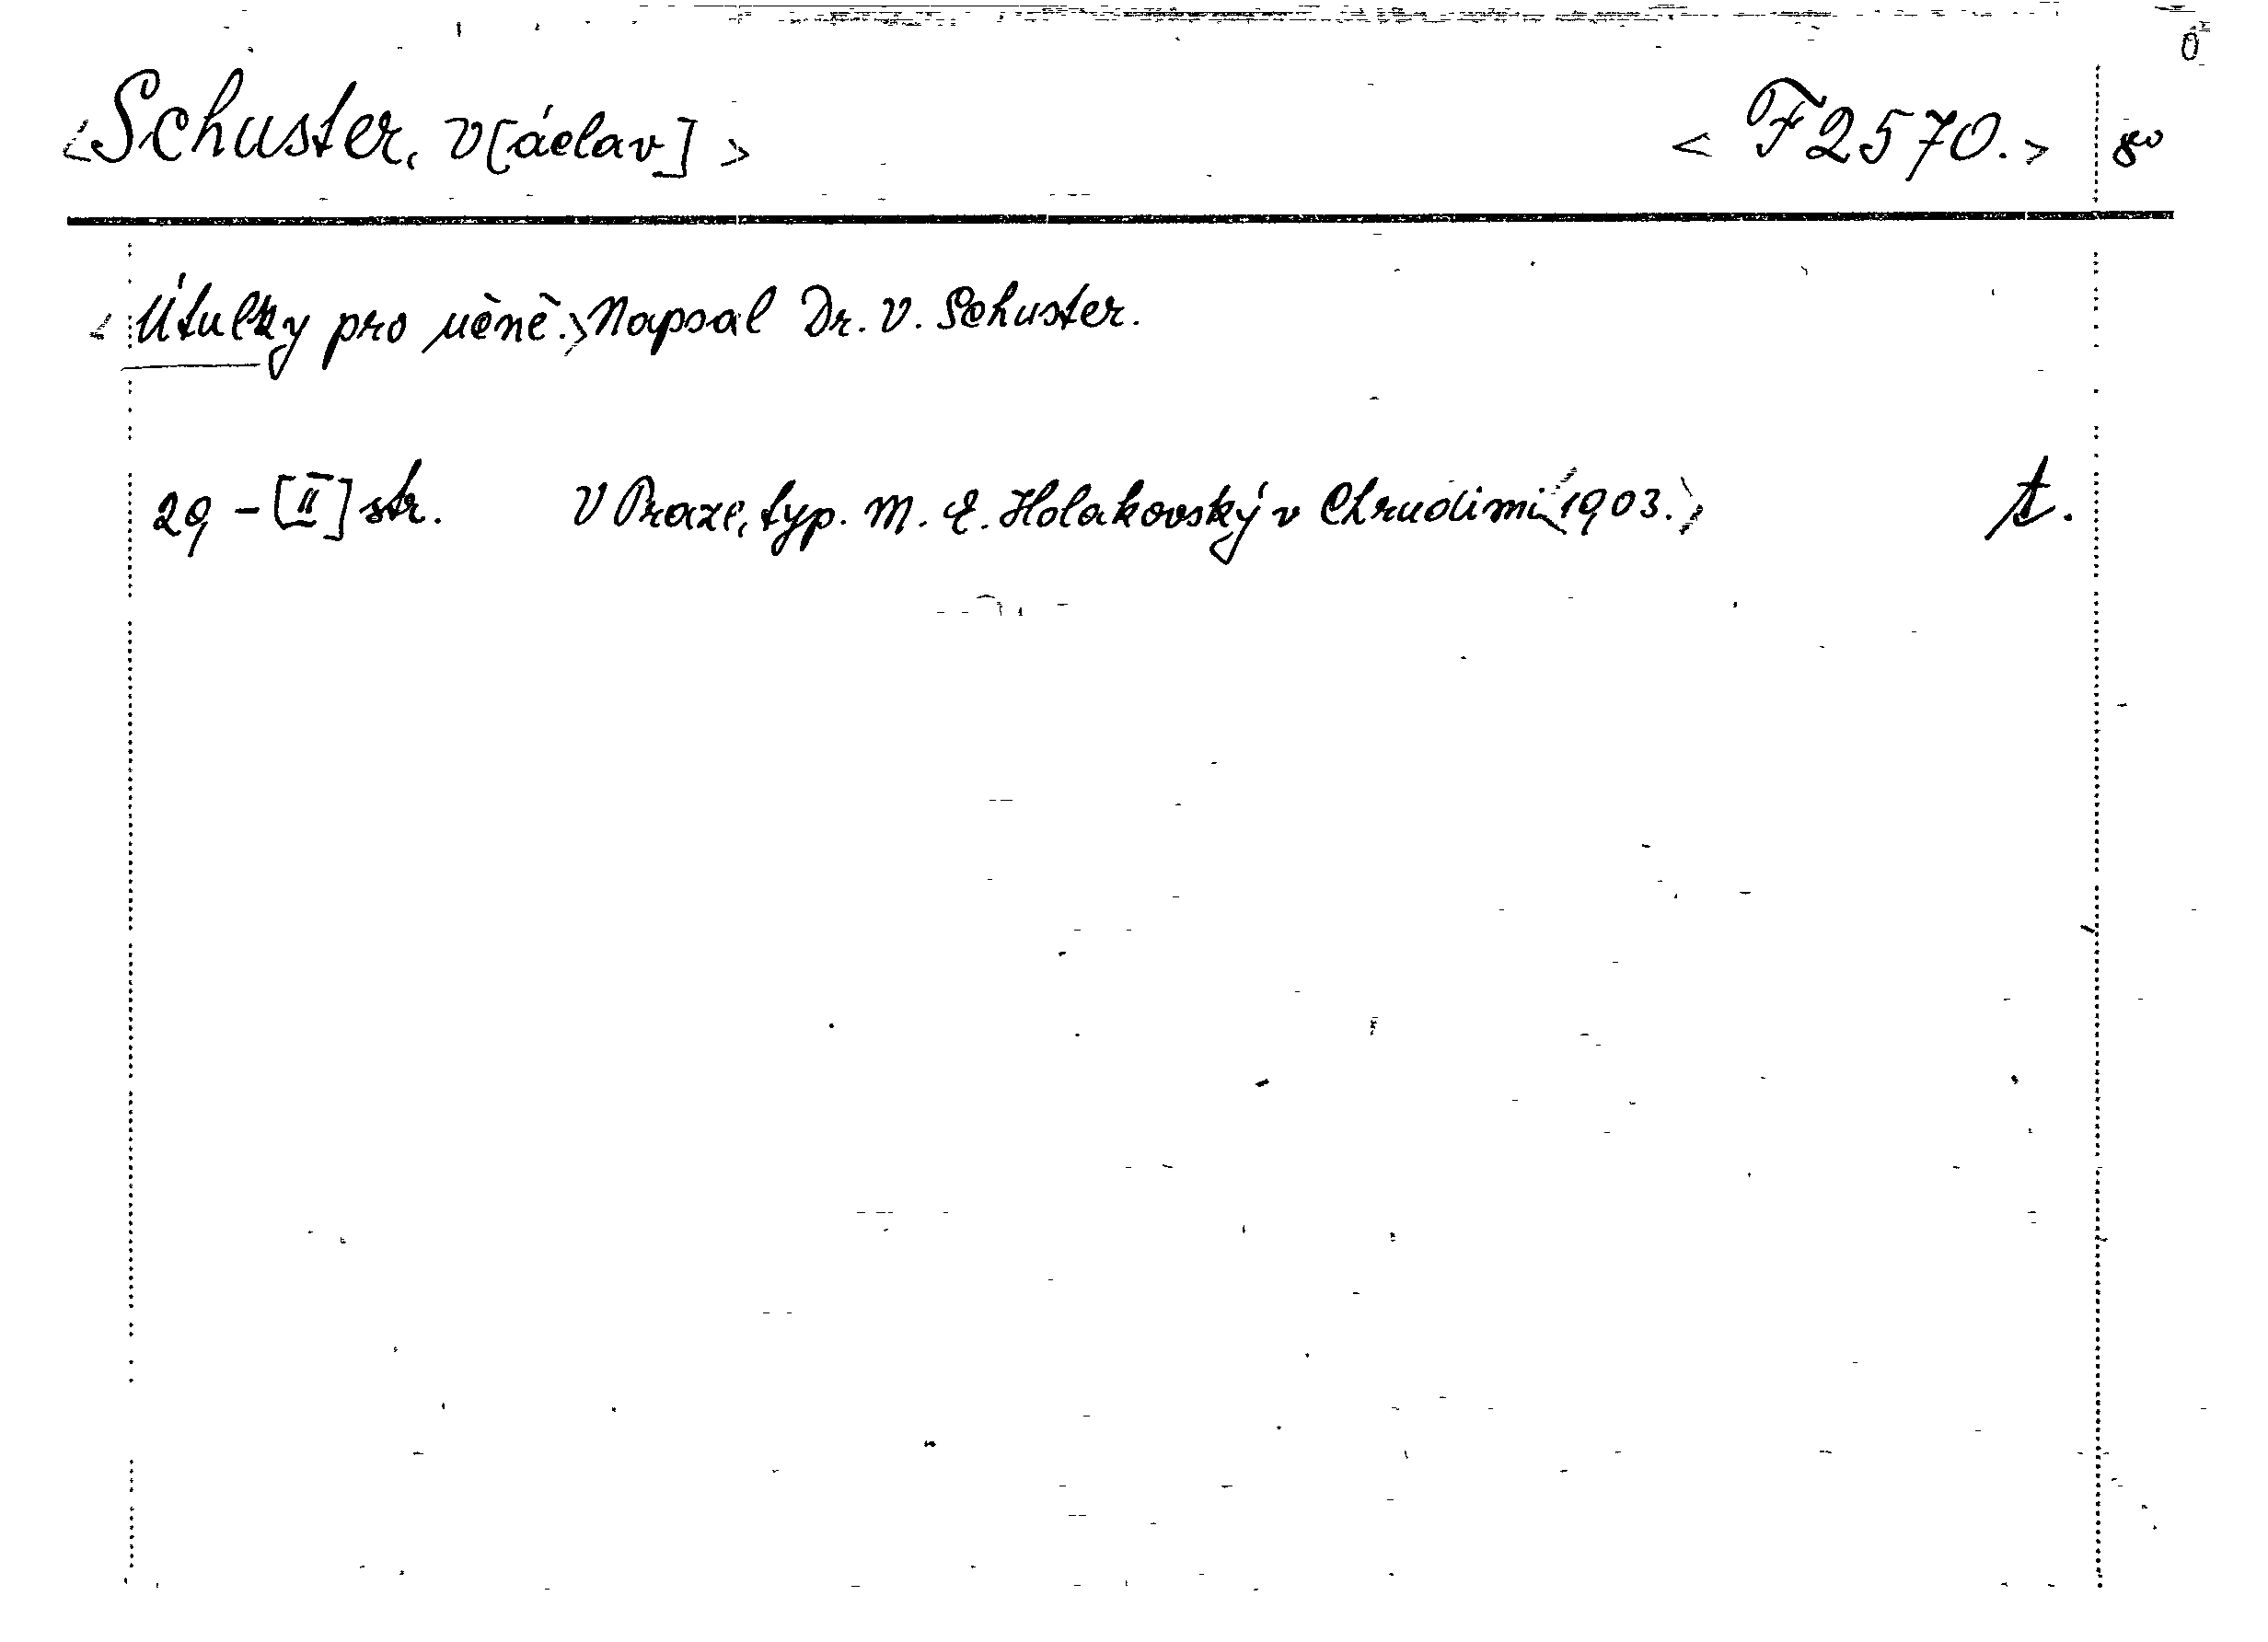 <Schuster, V[áclav]> <F 2570.> 8°
<Útulky pro učně.> Napsal Dr. V. Schuster.
29 - [II] str. V Praze, typ. M. E. Holakovský v Chrudimi <1903.> t.